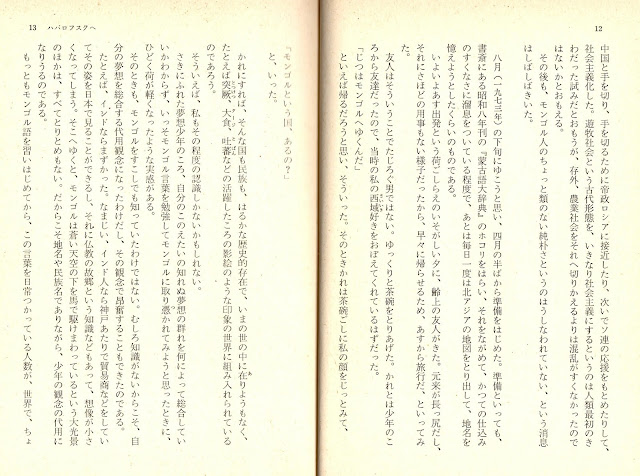 12
中国と手を切り、手を切るために帝政ロシアに接近したり、次いでソ連の応援をもとめたりして、
社会主義化した。遊牧社会という古代形態を、いきなり社会主義にするというのは人類最初の
わだった試みだとおもうが、存外、農業社会をそれへ切りかえるよりは混乱がすくなかったので
はないかとおもえる。
その後も、モンゴル人のちょっと類のない純朴さというのはうしなわれていない、という消息
はしばしばきいた。
八月(一九七三年)の下旬にゆこうと思い、四月の半ばから準備をはじめた。準備といっても、
書斎にある昭和八年刊の『蒙古語大辞典』のホコリをはらい、それをながめて、かつての仕込み
のすくなさに溜息をついている程度で、あとは毎日一度は北アジアの地図をとり出して、地名を
憶えようとしたくらいのものである。
いよいよあす出発という荷ごしらえのいそがしい夕に、齢上の友人がきた。元来が長っ尻だし、
それにさほどの用事もない様子だったから、早々に帰らせるため、あすから旅行だ、といってみ
た。
友人はそういうことでたじろぐ男ではない。ゆっくりと茶碗をとりあげた。かれとは少年のこ
ろから友達だったので、当時の私の西域好きをおぼえてくれているはずだった。
「じつはモンゴルへゆくんだ」
といえば帰るだろうと思い、そういった。そのときかれは茶碗ごしに私の顔をじっとみて、
13 ハバロフスクへ
「モンゴルという国、あるの?」
と、いった。
かれにすれば、そんな国も民族も、はるかな歴史的存在で、いまの世の中に在りようもなく、
たとえば突厥、大食、吐蕃などの活躍したころの影絵のような印象の世界に組み入れられている
のであろう。
そういえば、私もその程度の認識しかないかもしれない。
さきにふれた夢想少年のころ、自分のこのえたいの知れぬ夢想の群れを何によって総合してい
いかわからず、いっそモンゴル言葉を勉強してモンゴルに取り憑かれてみようと思ったときに、
ひどく荷が軽くなったような実感がある。
そのときも、モンゴルをすこしでも知っていたわけではない。むしろ知識がないからこそ、自
分の夢想を総合する代用観念になったわけだし、その観念で昂奮することもできたのである。
たとえば、インドならまずかった。なまじい、インド人なら神戸あたりで貿易商などをしてい
てその姿を日本で見ることができるし、それに仏教の故郷という知識などもあって、想像が小さ
くなってしまう。そこへゆくと、モンゴルは蒼い天空の下を馬で駆けまわっているという大光景
のほかは、すべてとりとめもない。だからこそ地名や民族名でありながら、少年の観念の代用に
なりうるのである。
もっともモンゴル語を習いはじめてから、この言葉を日常つかっている人数が、世界で、ちょ